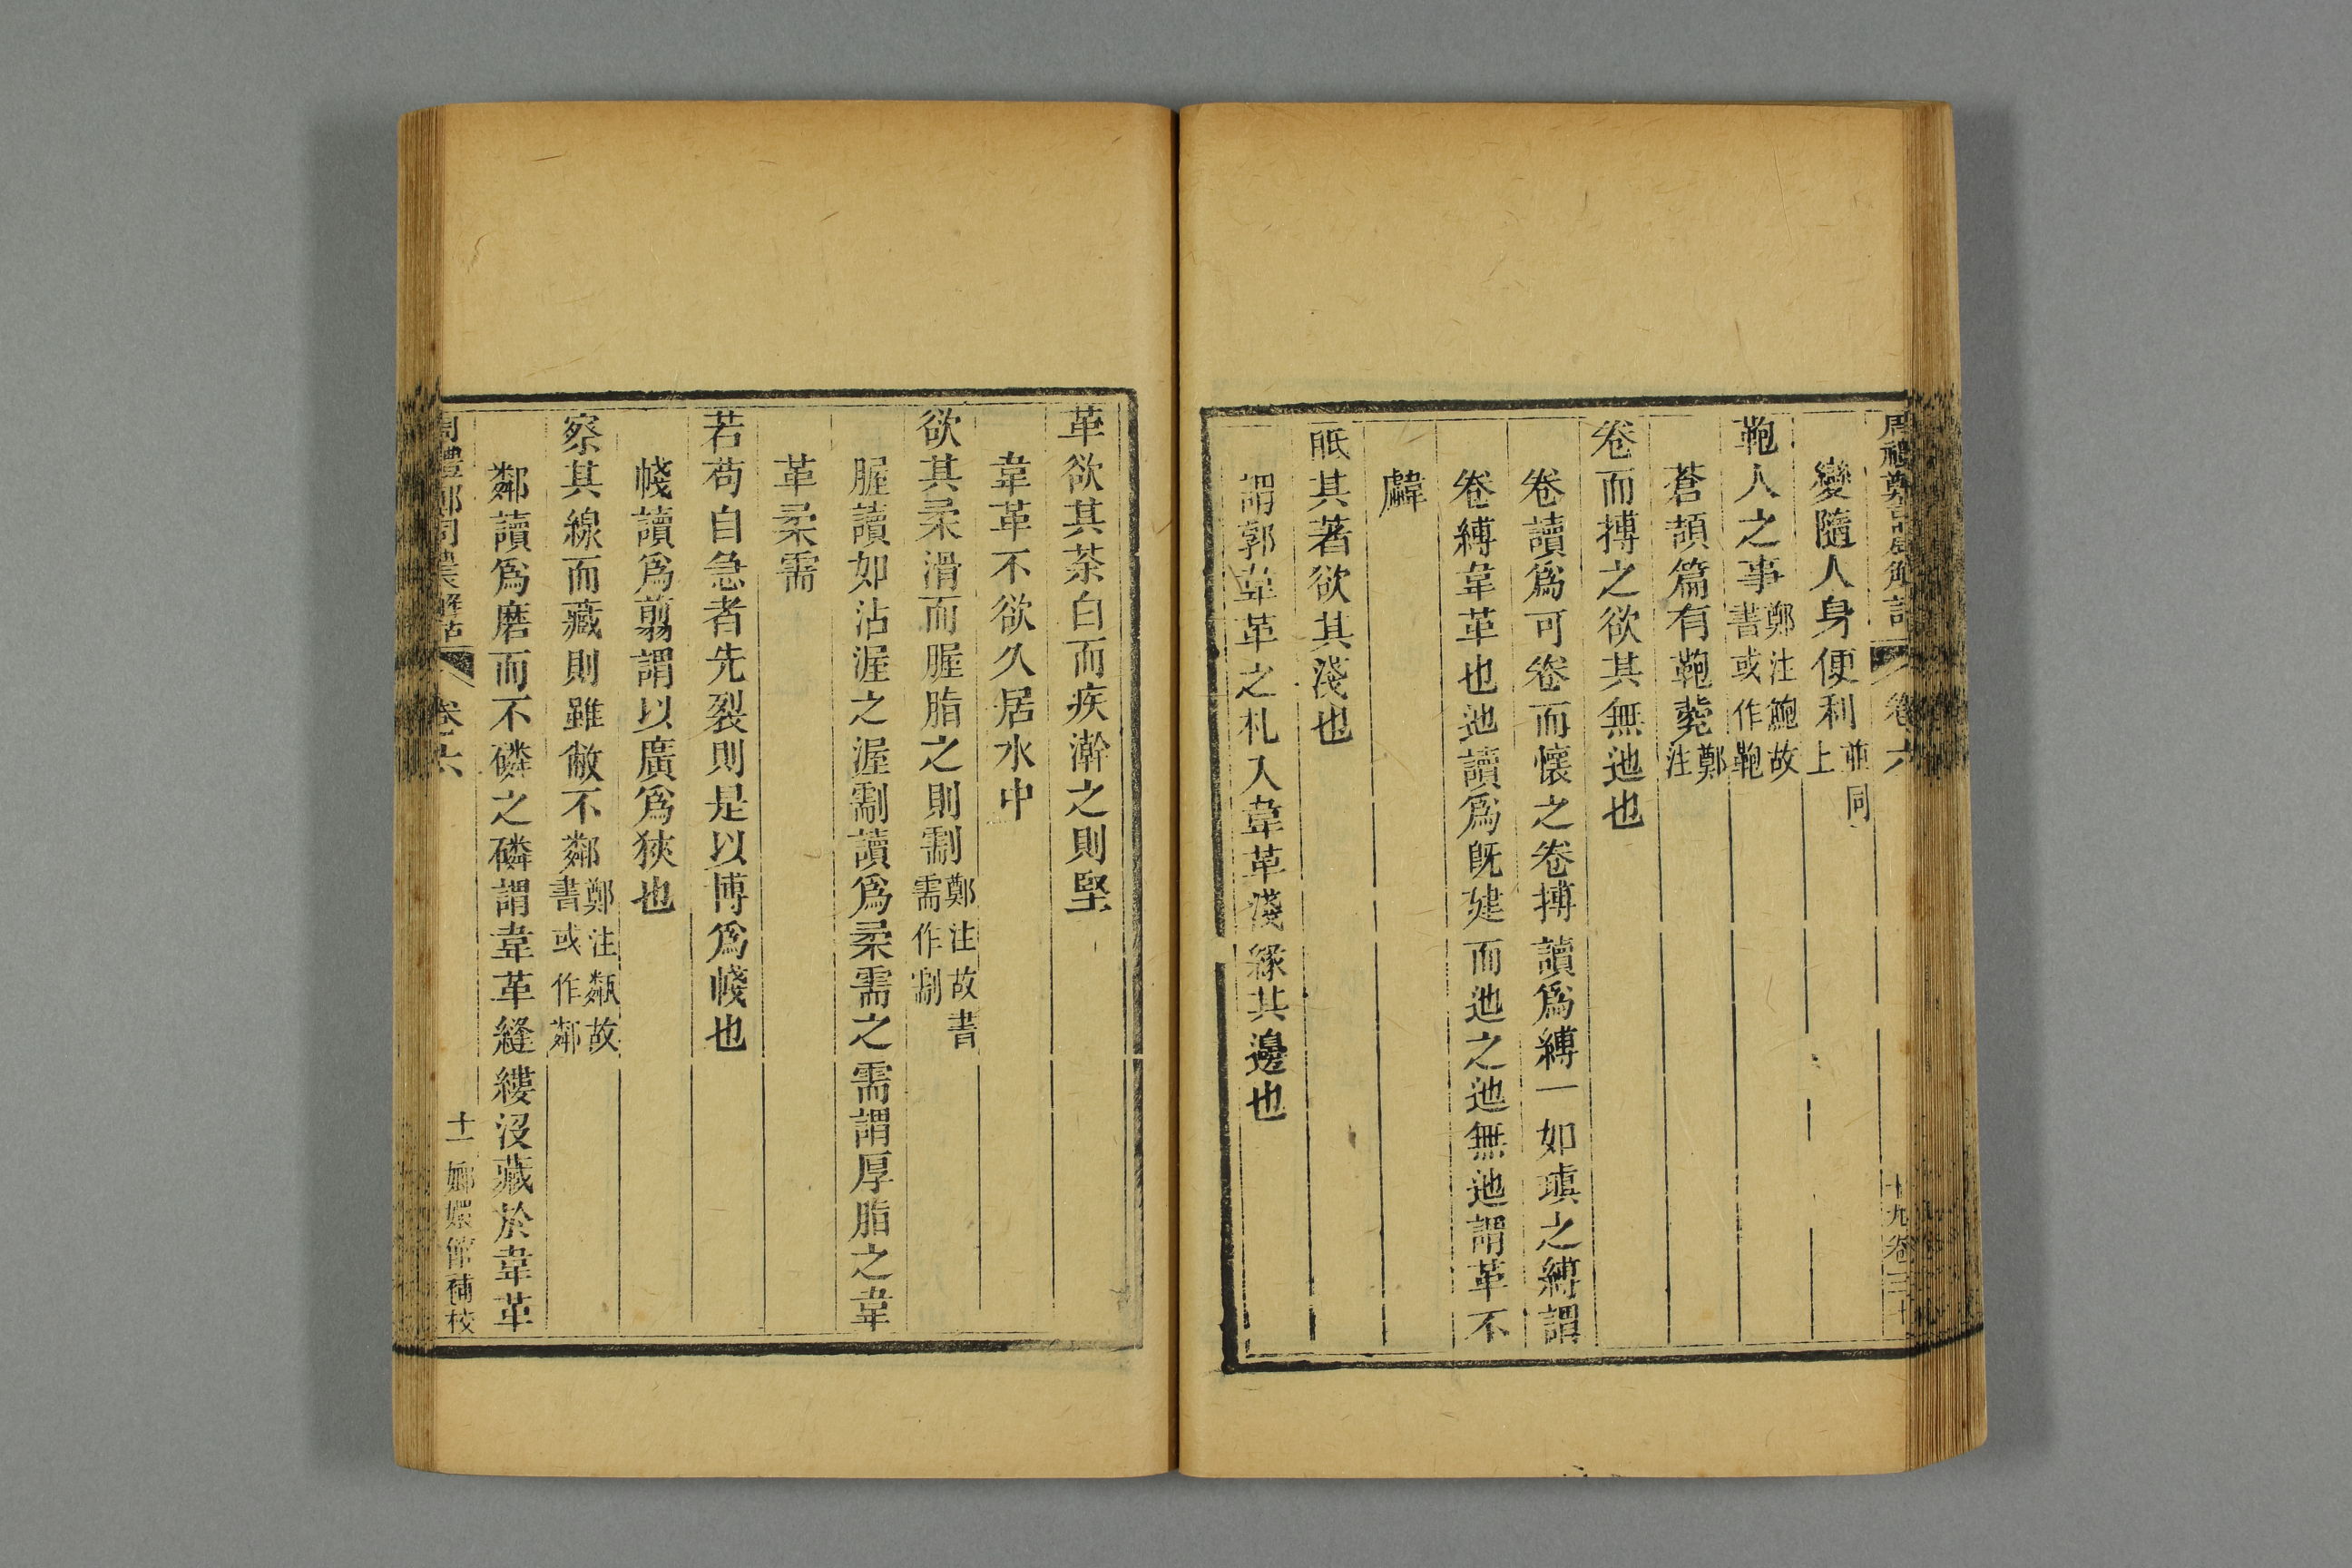 周禮鄭司農解詁 卷六 十九卷三十
變隨人身便利並同上
鞄人之事鄭注鮑故書或作鞄
蒼頡篇有鞄㼱鄭注
卷而摶之欲其無迆也
卷讀爲可卷而懷之卷摶讀爲縳一如瑱之縳謂
卷縳韋革也迆讀爲旣建而迆之迆無迆謂革不
䪜
眂其著欲其淺也
謂郭韋革之札入韋革淺緣其邊也
革欲其荼白而疾澣之則堅
韋革不欲久居水中
欲其柔滑而腛脂之則需鄭注故書需作㓴
腛讀如沾渥之渥㓴讀爲柔需之需謂厚脂之韋
革柔需
若苟自急者先裂則是以博爲帴也
帴讀爲翦謂以廣爲狹也
察其線而藏則雖敝不鄰鄭注甐故書或作鄰
鄰讀爲磨而不磷之磷謂韋革縫縷沒藏於韋革
周禮鄭司農解詁 卷六 十一 嫏嬛館補校